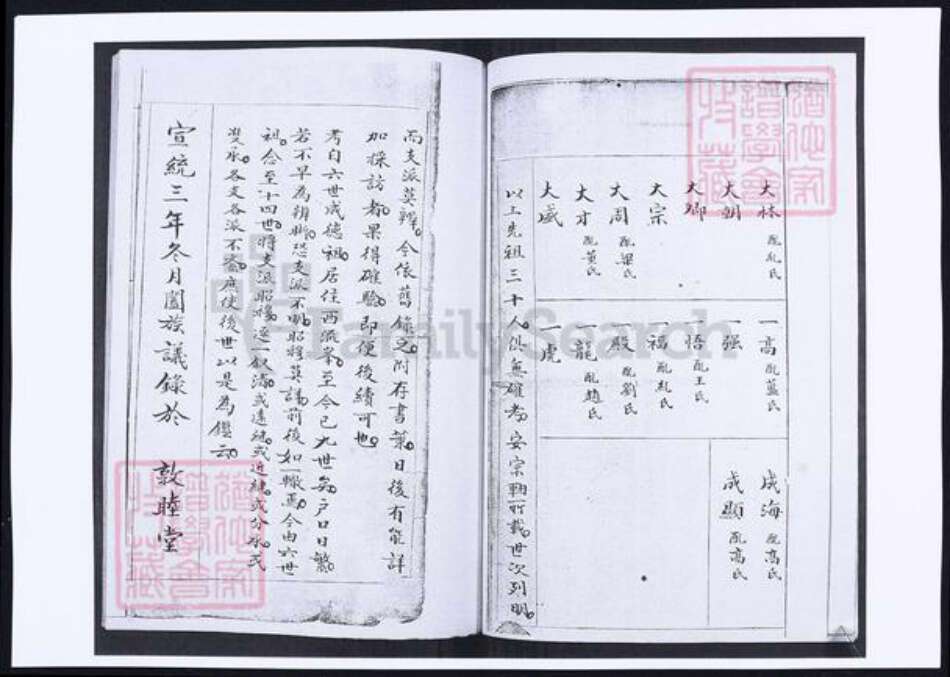 大林 配亂氏
大朝
大卿
大宗
大周 配梁氏
大才 配黃氏
大咸
一高 配藍氏
一强
一悟 配王氏
一福 配亂氏
一殿 配劉氏
一龍 配趙氏
一虎
成海 配高氏
成顯 配高氏
以上先祖三十人俱無確考安宗軸所載世次列明
而支派莫辨今依舊錄之附存書葉日後有能詳
加採訪者果得確驗即便後續可也
考自六世成德祖居住西𡾋峯至今已九世矣戶口日繁
若不早為辨斷恐支派不明昭穆莫講前後如一轍焉今由六世
祖念至十四世將支派昭穆逐一叙清或遠繼或近繼或分承或
雙承各支各派不紊庶使後世以是為鑑云
宣統三年冬月闔族議錄於 敦睦堂
FamilySearch
譜學會
收藏